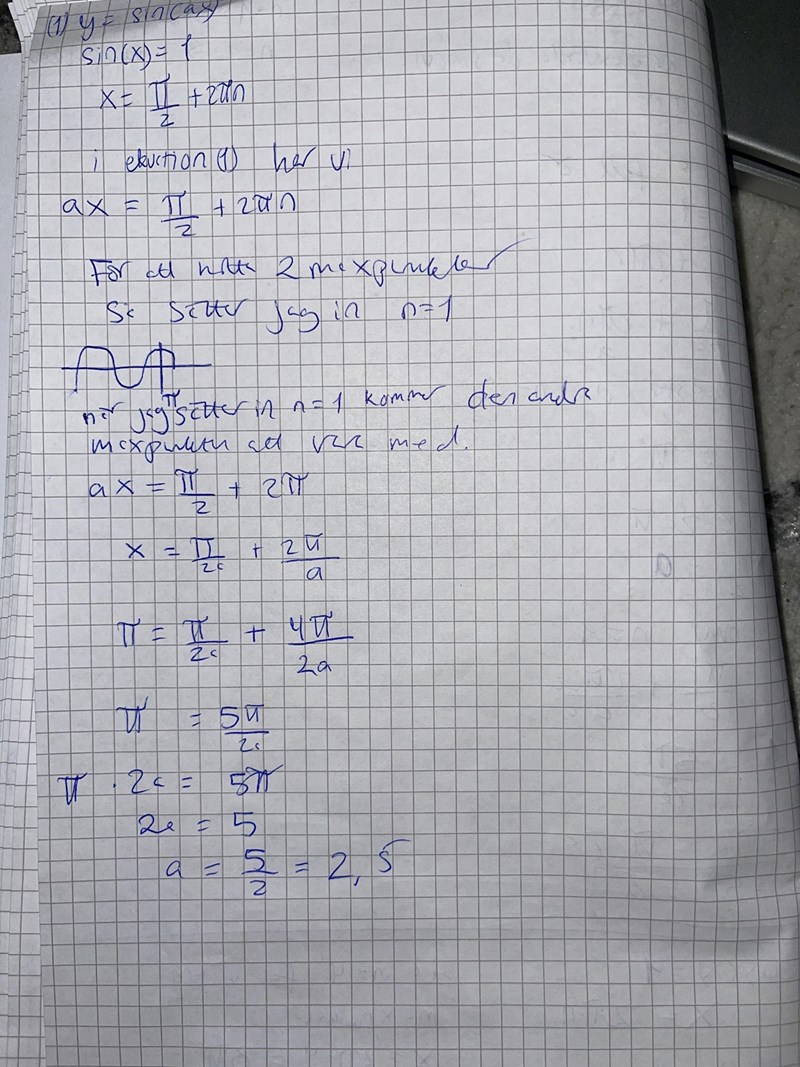 (1) y = sin(ax)
sin(x) = 1
x = π/2 + 2πn
i ekvation (1) har vi
ax = π/2 + 2πn
För att hitta 2 maxpunkter
så sätter jag in n=1
π
när jag sätter in n=1 kommer den andra
maxpunkten att vara med.
ax = π/2 + 2π
x = π/2a + 2π/a
π = π/2a + 4π/2a
π = 5π/2a
π · 2a = 5π
2a = 5
a = 5/2 = 2,5